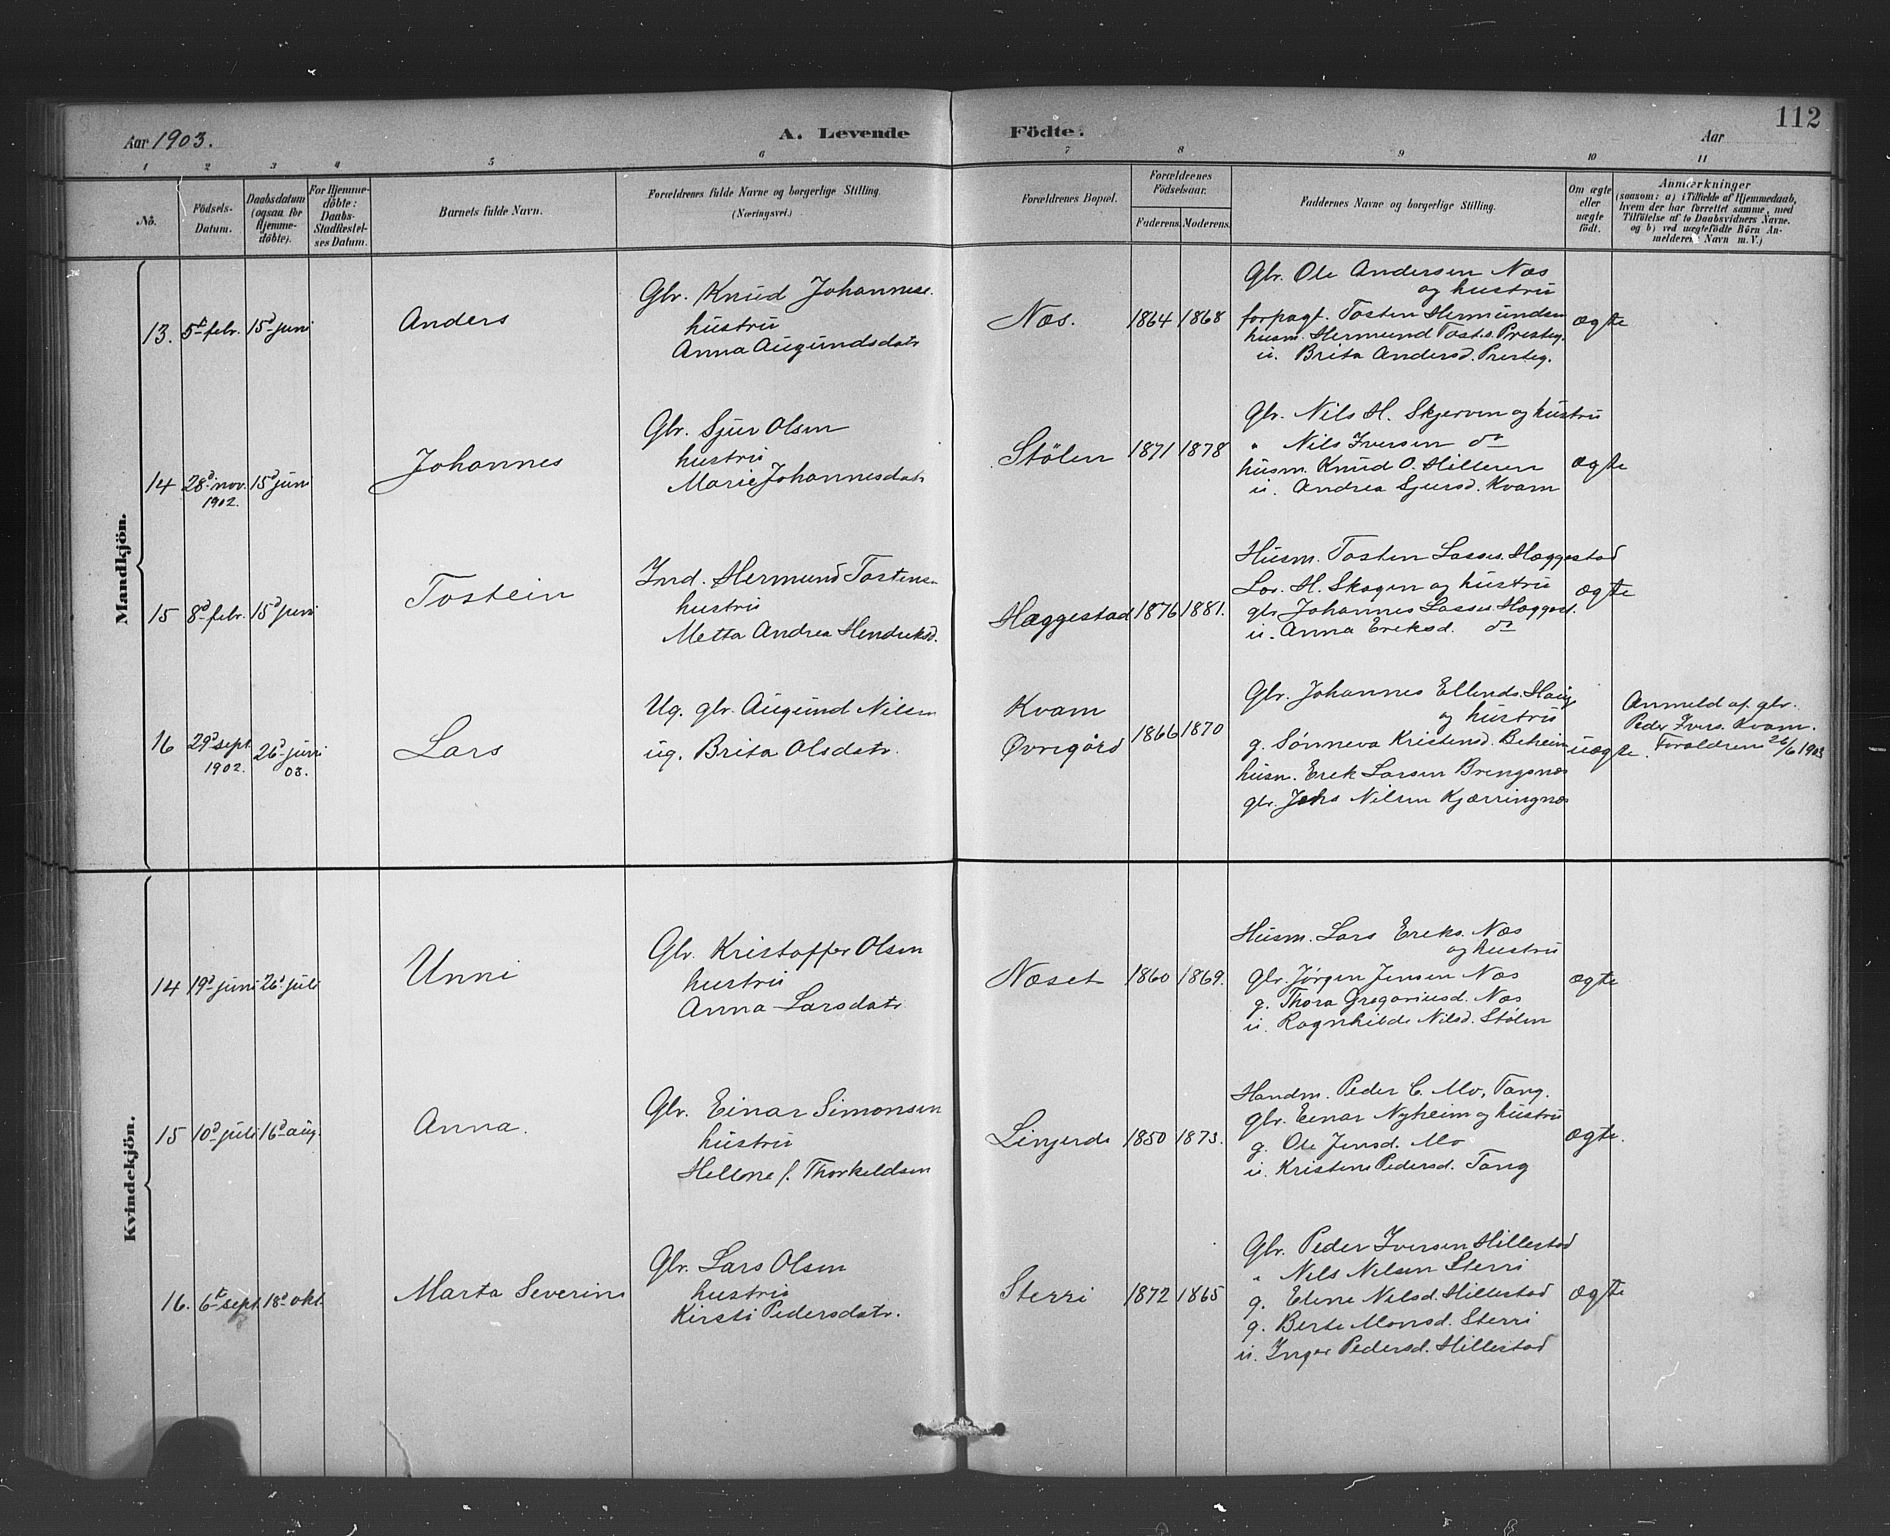 112
Aar 1903.
A. Levende Födte.
Aar
1 2 3 4 5 6 7 8 9 10 11
No.
Födsels-Datum.
Daabsdatum (ogsaa for Hjemme-döbte).
For Hjemme-döbte: Daabs-Stadfæstel-ses Datum.
Barnets fulde Navn.
Forældrenes fulde Navne og borgerlige Stilling. (Næringsvei.)
Forældrenes Bopæl.
Forældrenes Födselsaar.
Faderens. Moderens.
Faddernes Navne og borgerlige Stilling.
Om ægte eller uægte födt.
Anmærkninger
(saasom: a) i Tilfælde af Hjemmedaab,
hvem der har forrettet samme, med
Tilföielse af to Daabsvidners Navne.
og b) ved uægtefödte Börn An-
melderens Navn m. V.)
Mandkjön.
13. 5t febr. 15d juni
Anders
Gbr. Knud Johannese.
hustru
Anna Augundsdatr
Næs.
1864 1868
Gbr. Ole Andersen Næs
og hustru
forpagt. Tosten Hermundsen
husm. Hermund Tosts. Presteg.
u. Brita Andersd. Presteg.
ægte
14 28d nov. 1902. 15d juni
Johannes
Gbr. Sjur Olsen
hustru
Marie Johannesdatr
Stölen
1871 1878
Gbr. Nils H. Skjerven og hustru
" Nils Iversen do
husm. Knud O. Hilleren
u. Andrea Sjursd. Kvam
ægte
15 8d febr. 15d juni
Tostein
Ind. Hermund Tostens.
hustru
Metta Andrea Hendriksd.
Hæggestad
1876 1881.
Husm. Tosten Lasses. Hæggestad
Los. H. Skogen og hustru
gbr Johannes Lasses. Hæggest.
u. Anna Ereksd. do
ægte
16 29d sept. 1902. 26d juni 03.
Lars
Ug. gbr. Augund Nilsen
ug. Brita Olsdatr.
Kvam
Øvregård
1866 1870
Gbr. Johannes Ellends. Haug
og hustru
g. Sönneva Kristensd. Beheim
husm. Erek Larsen Brengsnæs
gbr. Johs Nilsen Kjærringnæs
uægte.
Anmeld af gbr.
Peder Ivers. Kvam.
Forældrene 26/6 1903
Kvindekjön.
14 19d juni 26d juli
Unni
Gbr. Kristoffer Olsen
hustru
Anna Larsdatr
Næset
1860 1869.
Husm. Lars Ereks. Næs
og hustru
gbr. Jörgen Jensen Næs
g. Thora Gregoriusd. Næs
u. Ragnhilde Nilsd. Stölen
ægte
15 10d juli 16d aug.
Anna.
Gbr. Einar Simonsen
hustru
Hellene f. Thorkeldsen
1850 1873.
Handm. Peder C. Mo, Tang.
gbr. Einar Nyheim og hustru
g. Ole Jensd. Mo
u. Kristens Pedersd. Tang
ægte.
16. 6t sept. 18d okt.
Marta Severine
Gbr. Lars Olsen
hustru
Kirsti Pedersdatr.
Sterri
1872 1865
Gbr. Peder Iversen Hillestad
" Nils Nilsen Sterri
g. Eline Nilsd. Hillestad
g. Berte Monsd. Sterri
u. Inger Pedersd. Hillestad
ægte